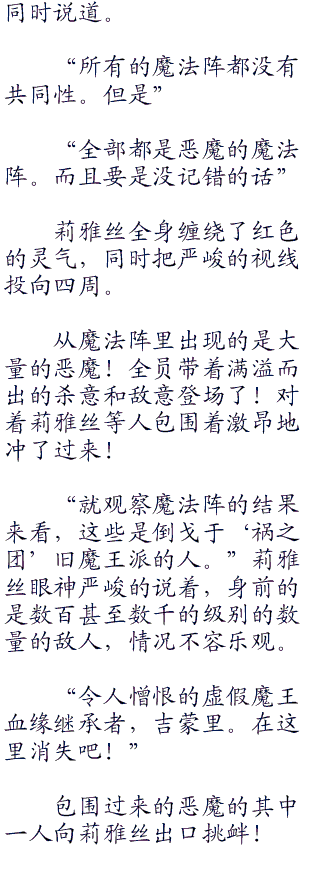 同时说道。
“所有的魔法阵都没有
共同性。但是”
“全部都是恶魔的魔法
阵。而且要是没记错的话”
莉雅丝全身缠绕了红色
的灵气，同时把严峻的视线
投向四周。
从魔法阵里出现的是大
量的恶魔！全员带着满溢而
出的杀意和敌意登场了！对
着莉雅丝等人包围着激昂地
冲了过来！
“就观察魔法阵的结果
来看，这些是倒戈于‘祸之
团’旧魔王派的人。”莉雅
丝眼神严峻的说着，身前的
是数百甚至数千的级别的数
量的敌人，情况不容乐观。
“令人憎恨的虚假魔王
血缘继承者，吉蒙里。在这
里消失吧！”
包围过来的恶魔的其中
一人向莉雅丝出口挑衅！